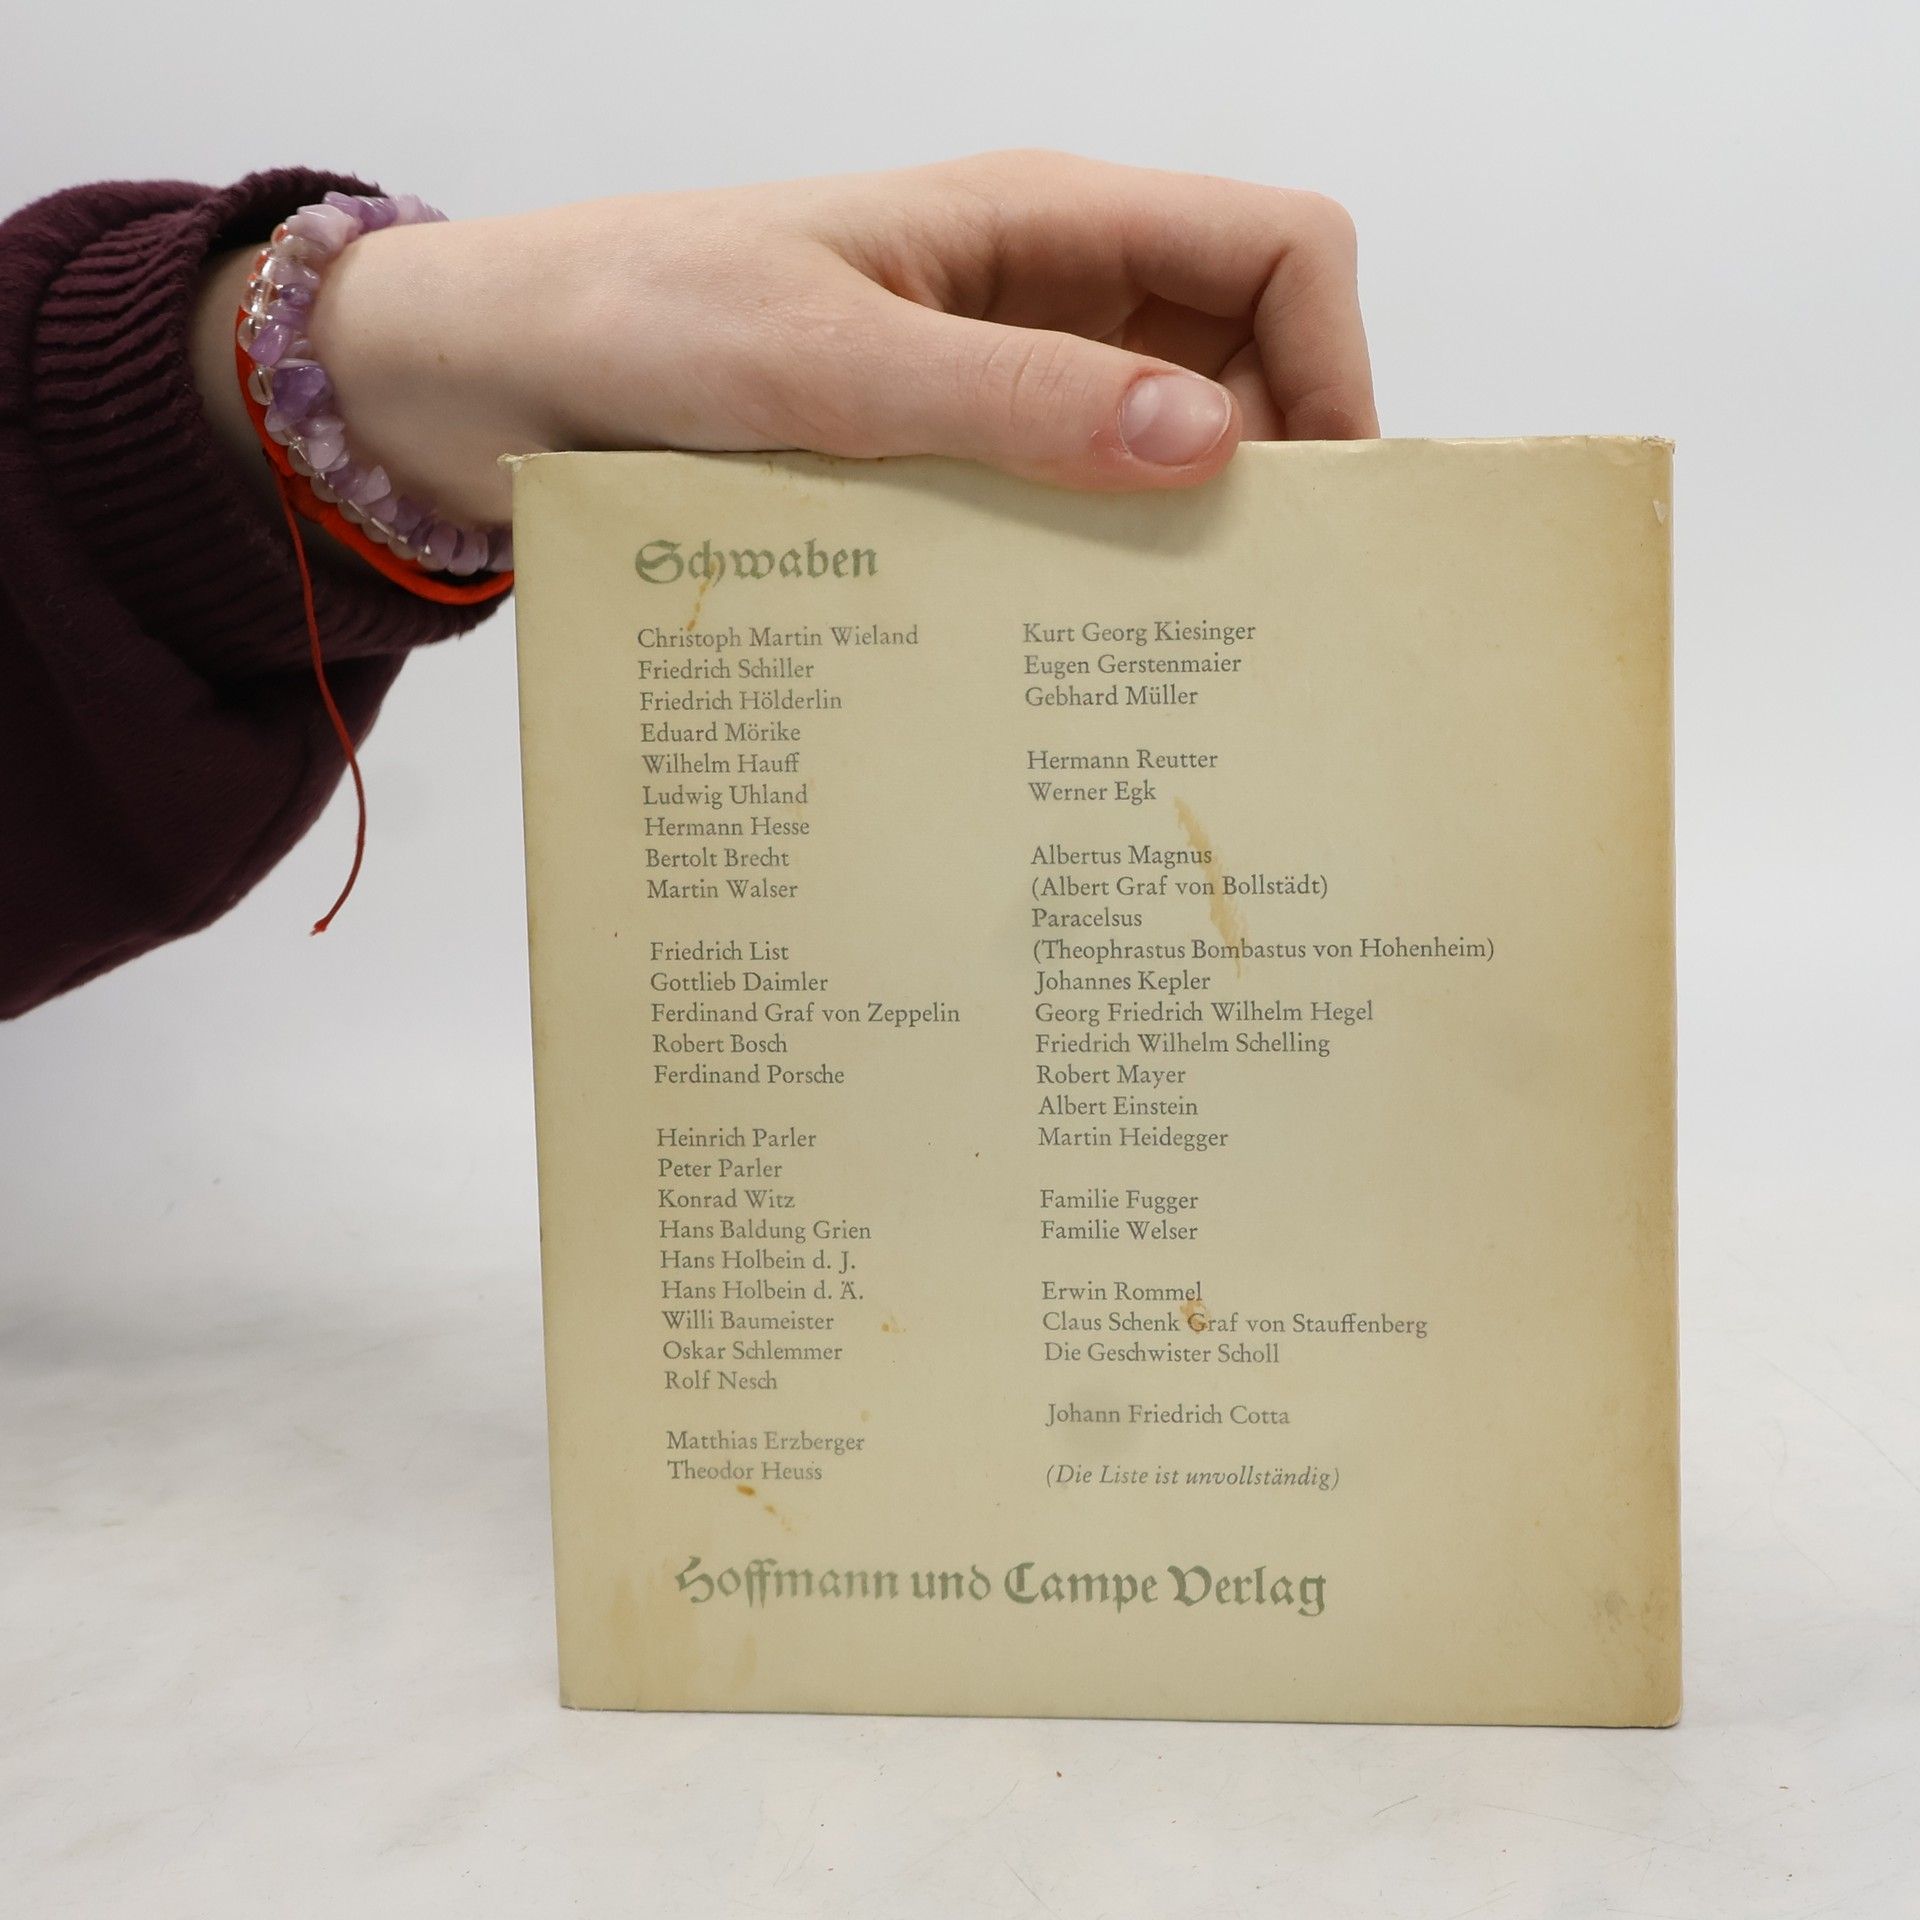 Schwaben
Christoph Martin Wieland
Friedrich Schiller
Friedrich Hölderlin
Eduard Mörike
Wilhelm Hauff
Ludwig Uhland
Hermann Hesse
Bertolt Brecht
Martin Walser
Friedrich List
Gottlieb Daimler
Ferdinand Graf von Zeppelin
Robert Bosch
Ferdinand Porsche
Heinrich Parler
Peter Parler
Konrad Witz
Hans Baldung Grien
Hans Holbein d. J.
Hans Holbein d. Ä.
Willi Baumeister
Oskar Schlemmer
Rolf Nesch
Matthias Erzberger
Theodor Heuss
Kurt Georg Kiesinger
Eugen Gerstenmaier
Gebhard Müller
Hermann Reutter
Werner Egk
Albertus Magnus
(Albert Graf von Bollstädt)
Paracelsus
(Theophrastus Bombastus von Hohenheim)
Johannes Kepler
Georg Friedrich Wilhelm Hegel
Friedrich Wilhelm Schelling
Robert Mayer
Albert Einstein
Martin Heidegger
Familie Fugger
Familie Welser
Erwin Rommel
Claus Schenk Graf von Stauffenberg
Die Geschwister Scholl
Johann Friedrich Cotta
(Die Liste ist unvollständig)
Hoffmann und Campe Verlag